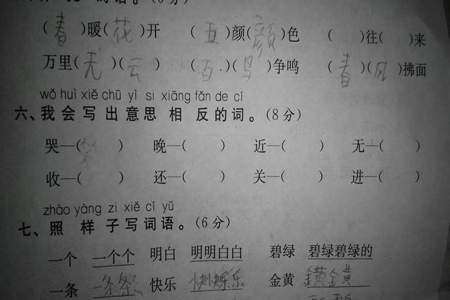 词语。(6分)
(春)暖(花)开 (五)颜(颜)色 ( )往( )来
万里(无)(云) (百)(鸟)争鸣 (春)(风)拂面
wǒ huì xiě chū yì si xiāng fǎn de cí
六、我会写出意思相反的词。(8分)
哭—(笑) 晚—( ) 近—( ) 无—( )
收—( ) 还—( ) 关—( ) 进—( )
zhào yàng zi xiě cí yǔ
七、照样子写词语。(6分)
一个 一个个 明白 明明白白 碧绿 碧绿碧绿的
一条 一条条 快乐 快快乐乐 金黄 金黄金黄